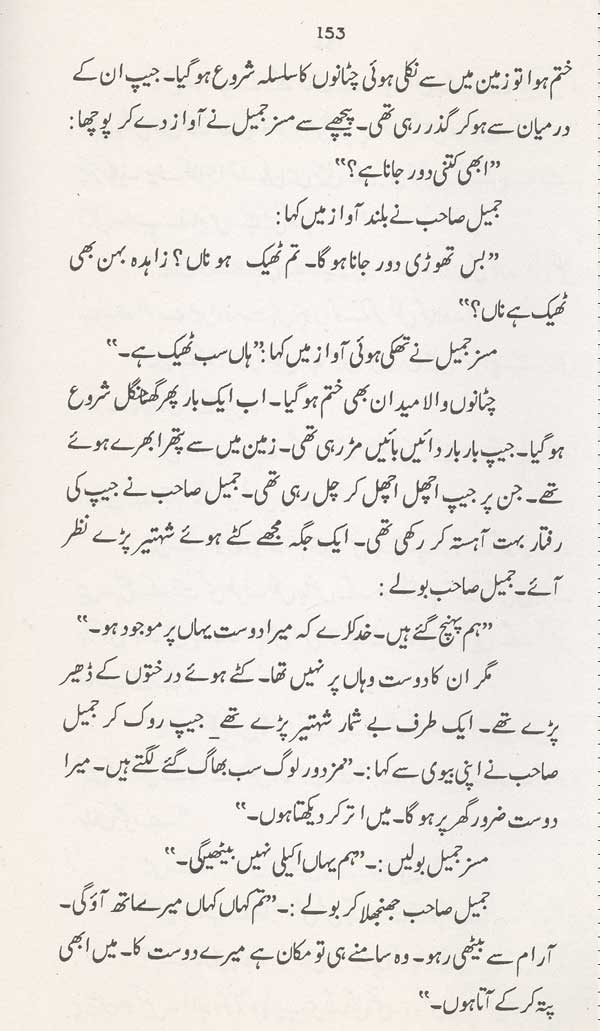 153
ختم ہوا تو زمین میں سے نکلی ہوئی چٹانوں کا سلسلہ شروع ہو گیا۔ جیپ ان کے
درمیان سے ہو کر گذر رہی تھی۔ پیچھے سے مسز جمیل نے آواز دے کر پوچھا:
”ابھی کتنی دور جانا ہے؟“
جمیل صاحب نے بلند آواز میں کہا:
”بس تھوڑی دور جانا ہو گا۔ تم ٹھیک ہو ناں؟ زاہدہ بہن بھی
ٹھیک ہے ناں؟“
مسز جمیل نے تھکی ہوئی آواز میں کہا: ”ہاں سب ٹھیک ہے۔“
چٹانوں والا میدان بھی ختم ہو گیا۔ اب ایک بار پھر گھنا جنگل شروع
ہو گیا۔ جیپ بار بار دائیں بائیں مڑ رہی تھی۔ زمین میں سے پتھر ابھرے ہوئے
تھے۔ جن پر جیپ اچھل اچھل کر چل رہی تھی۔ جمیل صاحب نے جیپ کی
رفتار بہت آہستہ کر رکھی تھی۔ ایک جگہ مجھے کٹے ہوئے شہتیر پڑے نظر
آئے۔ جمیل صاحب بولے:
”ہم پہنچ گئے ہیں۔ خدا کرے کہ میرا دوست یہاں پر موجود ہو۔“
مگر ان کا دوست وہاں پر نہیں تھا۔ کٹے ہوئے درختوں کے ڈھیر
پڑے تھے۔ ایک طرف بے شمار شہتیر پڑے تھے_ جیپ روک کر جمیل
صاحب نے اپنی بیوی سے کہا:۔ ”مزدور لوگ سب بھاگ گئے لگتے ہیں۔ میرا
دوست ضرور گھر پر ہو گا۔ میں اتر کر دیکھتا ہوں۔“
مسز جمیل بولیں:۔ ”ہم یہاں اکیلی نہیں بیٹھیں گی۔“
جمیل صاحب جھنجھلا کر بولے:۔ ”تم کہاں کہاں میرے ساتھ آؤ گی۔
آرام سے بیٹھی رہو۔ وہ سامنے ہی تو مکان ہے میرے دوست کا۔ میں ابھی
پتہ کر کے آتا ہوں۔“